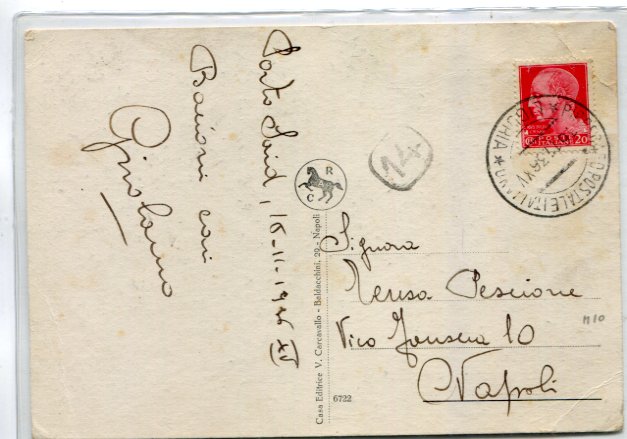 Porto Said, 16-11-1936 XV
Bacioni cari
Girolamo
14
C R
Casa Editrice V. Carcavallo - Baldacchini, 29 - Napoli
6722
POSTE
ITALIANE 20
POSTALE ITALIANO ★
11.36 XV
Signora
Teresa Pescione
Vico Fonseca 10
Napoli